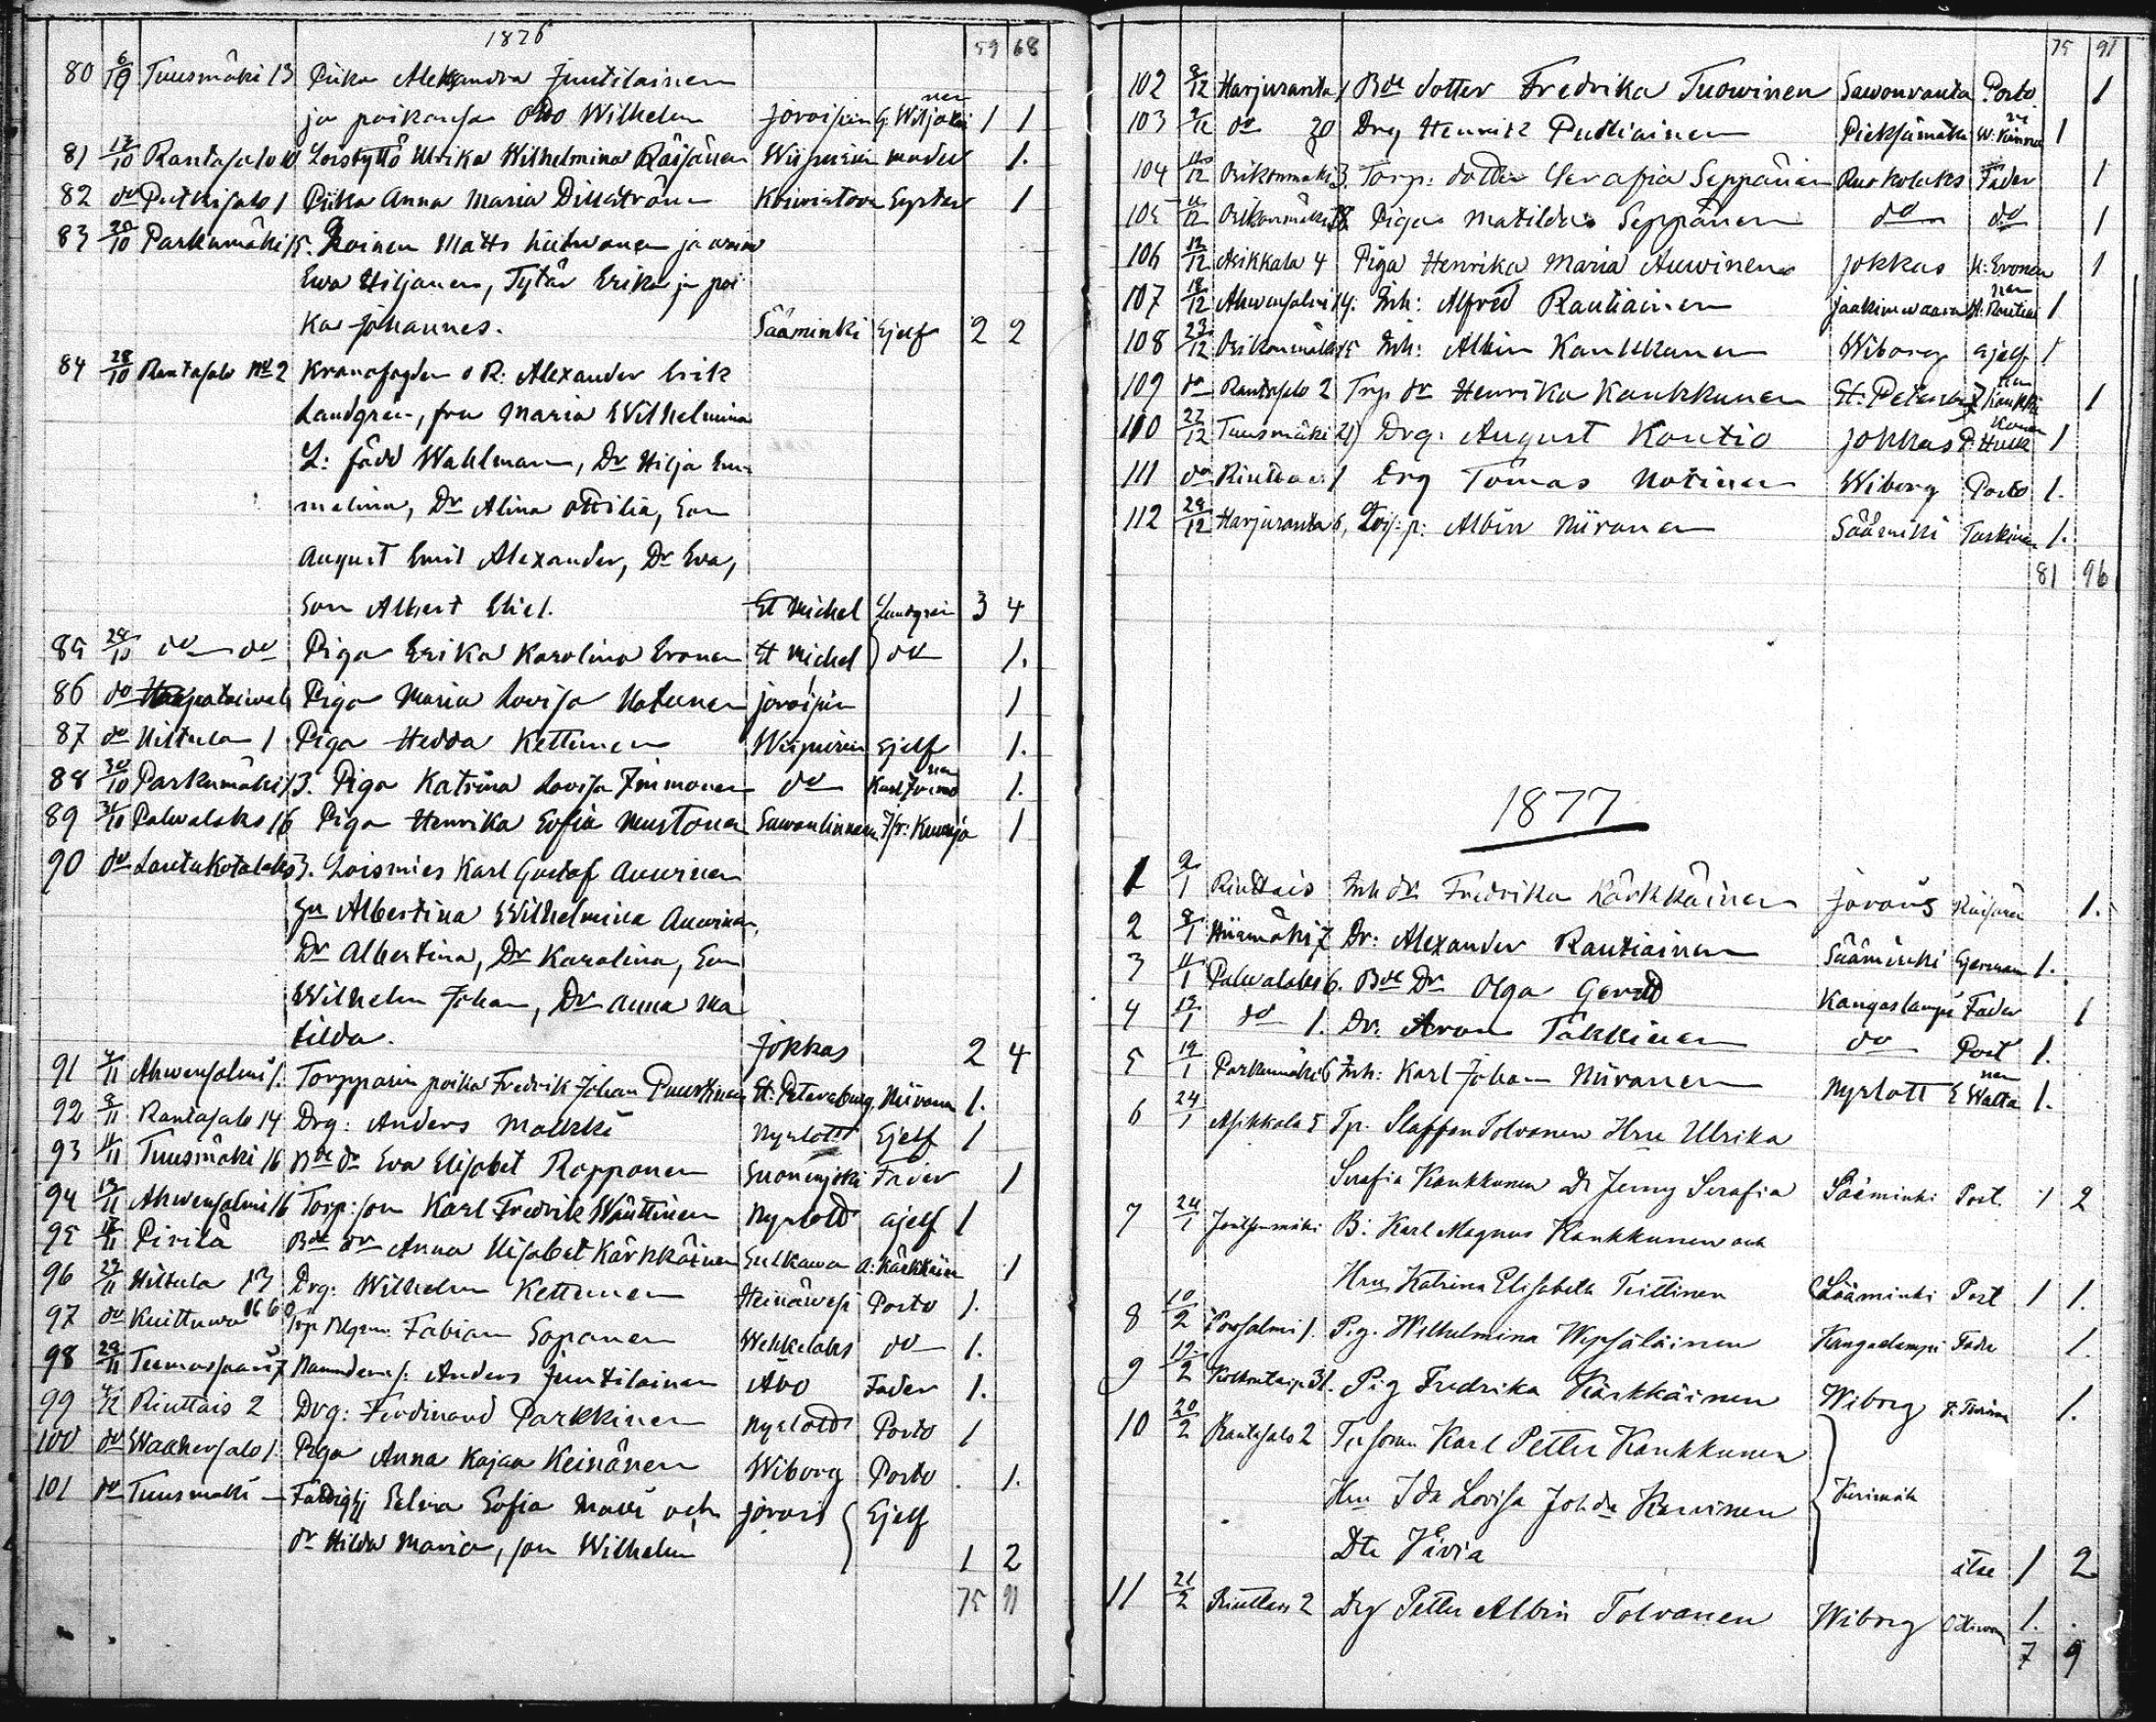 1876
59 68
80 6/10 Tuusmäki 13 Piika Aleksandra Juutilainen
ja poikansa Otto Wilhelm Joroisiin G. Wiljakainen 1 1
81 17/10 Rantasalo 10 Loistyttö Ulrika Wilhelmina Räisänen Wiipuriin moder 1.
82 do Putkisalo 1 Piika Anna Maria Dillström Koivistoon Syster 1
83 20/10 Parkumäki 15. Matts ja
Ewa Hiljanen, Tytär Erika ja poi
ka Johannes. Sääminki Sjelf 2 2
84 28/10 Rantasalo No 2 Kronofogden o R: Alexander Erik
Landgrén, fru Maria Wilhelmina
L: född Wahlman, Dr Hilja Em
malina, Dr Alina Ottilia, Son
August Emil Alexander, Dr Eva,
Son Albert Eliel. St Michel Landgrén 3 4
85 28/10 do do Piga Erika Karolina Eronen St Michel do 1.
86 do Haapataiwal Piga Maria Lovisa Joroisiin 1
87 do Hiltula 1 Piga Hedda Kettunen Wiipuriin Sjelf 1.
88 30/10 Parkumäki 13. Piga Katrina Lovisa Immonen do Karl Immonen 1.
89 31/10 Palvalaks 16 Piga Henrika Sofia Mustonen Sawonlinnan 1
90 do Lautakotalaks 3. Loismies Karl Gustaf Auvinen
Hu Albertina Wilhelmina Auvinen,
Dr Albertina, Dr Karolina, Son
Wilhelm Johan, Dr Anna Ma
tilda. Jokkas 2 4
91 4/11 Ahwensalmi 1. Torpparin poika Fredrik Johan Puustinen St. Petersburg Niiranen 1.
92 9/11 Rantasalo 14 Drg: Anders Malkki Nyslott Sjelf 1
93 11/11 Tuusmäki 16 Bde dr Eva Elisabet Ropponen Suonenjoki Fader 1
94 13/11 Ahwensalmi 16 Torp: son Karl Fredrik Wänttinen Nyslott Sjelf 1
95 18/11 Pirilä Bde dr Anna Elisabet Kärkkäinen Sulkawa A: Kärkkäinen 1
96 27/11 Hiltula 13 Drg: Wilhelm Kettunen Heinäwesi Porto 1.
97 do Kuittuwa Fabian Sopanen Wehkalaks do 1.
98 29/11 Anders Juutilainen Åbo Fader 1.
99 4/12 Rinttais 2 Drg: Ferdinand Parkkinen Nyslott Porto 1
100 do Waahersalo 1. Piga Anna Kajsa Keinänen Wiborg Porto 1.
101 do Tuusmäki Selma Sofia och Jorois Sjelf
dr Hilda Maria, son Wilhelm 1 2
75 91
75 91
102 9/12 Harjuranta 1 Bde dotter Fredrika Tuowinen Sawonranta Porto 1
103 9/12 do 20 Drg Henrik Putkiainen Pieksämäki W: 1
104 11/12 Oikonmäki 3. Torp: dotter Serafia Seppänen Ruokolaks Fader 1
105 11/12 Oikonmäki 8 Piga Matilda Seppänen do do 1
106 12/12 Asikkala 4 Piga Henrika Maria Auwinen Jokkas H: Eronen 1
107 18/12 Ahwensalmi 14. Inh: Alfred Rautiainen Jaakimwaara H. Rautiainen 1
108 23/12 Oikonmäki 15 Inh: Albin Kaukkanen Wiborg Sjelf 1
109 do Rantasalo 2 Trp dr Henrika Kaukkunen St. Petersb 1
110 27/12 Tuusmäki 21) Drg: August Kontio Jokkas P: Hulkkonen 1
111 do Rinttais 1 Drg Tomas Notinen Wiborg Porto 1.
112 29/12 Harjuranta 6, Lois: p: Albin Niiranen Sääminki Taskinen 1.
81 96
1877
1 2/1 Rinttais Inh dr Fredrika Kärkkäinen Jorois Räisänen 1.
2 8/1 Hiismäki 7 Dr: Alexander Rautiainen Sääminki German 1.
3 11/1 Palvalaks 6. Bde Dr Olga Kangaslampi Fader 1
4 13/1 do 1. Dr: Aron Täkkinen do Post 1.
5 19/1 Parkumäki 6 Inh: Karl Johan Niiranen Nyslott 1.
6 24/1 Asikkala 5 Tp. Staffan Tolvanen Hru Ulrika
Serafia Kaukkunen Dr Jenny Serafia Sääminki Post. 1 2
7 24/1 B: Karl Magnus Kaukkunen och
Hru Katrina Elisabeth Teittinen Sääminki Post 1 1.
8 10/2 Porosalmi 1. Pig. Wilhelmina Wepsäläinen Kangaslampi Fader 1.
9 19/2 Pig Fredrika Kärkkäinen Wiborg 1.
10 20/2 Rantasalo 2 Karl Petter Kaukkunen
Hru Ida Lovisa Joh dr Karvinen Kerimäki
Dtr Viivia itse 1 2
11 21/2 Rinttais 2 Drg Petter Albin Tolvanen Wiborg 1.
7 9